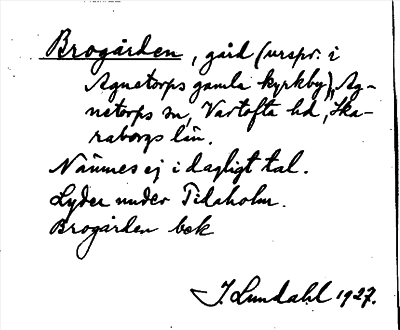 Brogården, gård (urspr. i
Agnetorps gamla kyrkby), Ag-
netorps sn, Vartofta hd, Ska-
raborgs län.
Nämnes ej i dagligt tal.
Lyder under Tidaholm.
Brogården bek
J. Lundahl 1927.